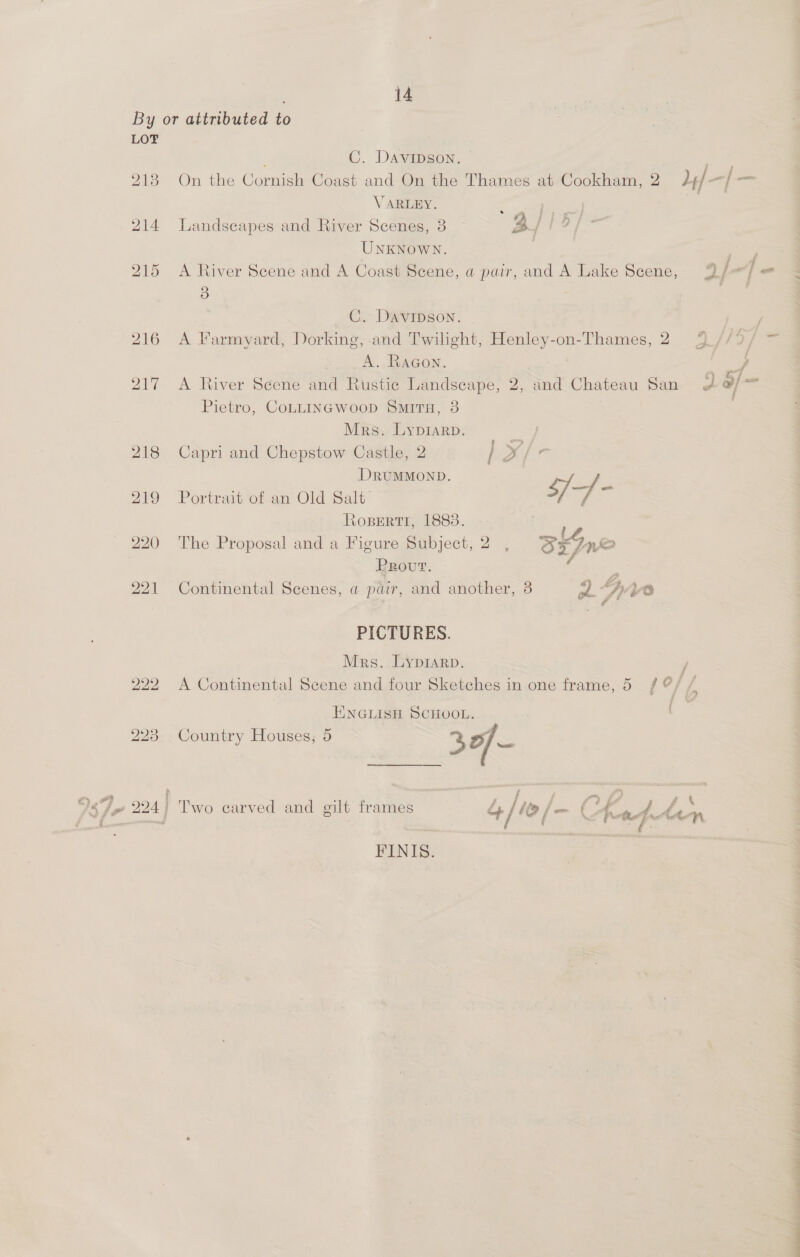 14
By or attributed to
LOT
C. DAVIDSON.
213 On the Cornish Coast and On the Thames at Cookham, 2 4/-/-
VARLEY.
214 Landscapes and River Scenes, 3 2/15/-
UNKNOWN.
215 A River Scene and A Coast Scene, a pair, and A Lake Scene, 2/-/-
3
C. DAVIDSON.
216 A Farmyard, Dorking, and Twilight, Henley-on-Thames, 2 2/15/-
A. RAGON.
217 A River Scene and Rustic Landscape, 2, and Chateau San
Pietro, COLLINGWOOD SMITH, 3
Mrs. LYDIARD.
218 Capri and Chepstow Castle, 2
DRUMMOND.
219 Portrait of an Old Salt
ROBERTI, 1883.
220 The Proposal and a Figure Subject, 2
PROUT.
221 Continental Scenes, a pair, and another, 3
PICTURES.
Mrs. LYDIARD.
222 A Continental Scene and four Sketches in one frame, 5
ENGLISH SCHOOL.
223 Country Houses, 5 30/-
224 Two carved and gilt frames 4/10/-
FINIS.